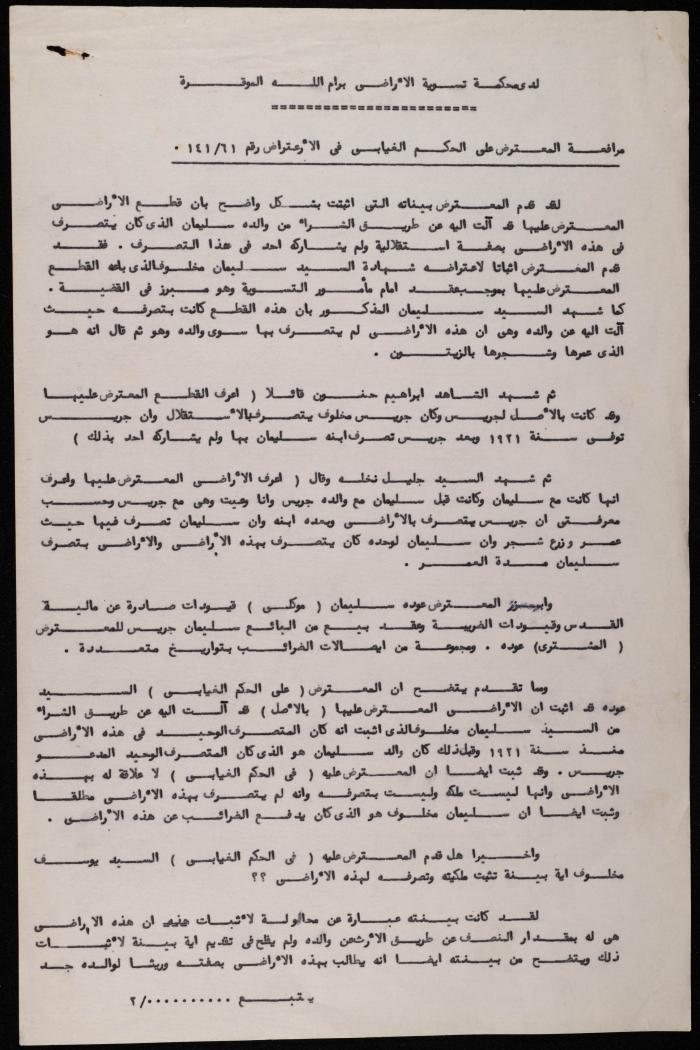 لدى محكمة تسوية الاراضى برام الله الموقرة
=======================
مرافعة المعترض على الحكم الغيابى فى الاعتراض رقم ١٤١/٦١ .
لقد قدم المعترض بيناته التى اثبتت بشكل واضح بان قطع الاراضى
المعترض عليها قد آلت اليه عن طريق الشراء من والده سليمان الذى كان يتصرف
فى هذه الاراضى بصفة استقلالية ولم يشاركه احد فى هذا التصرف . فقد
قدم المعترض اثباتا لاعتراضه شهادة السيد سليمان مخلوف الذى باعه القطع
المعترض عليها بموجب عقد امام مأمور التسوية وهو مبرز فى القضية .
كما شهد السيد سليمان المذكور بان هذه القطع كانت بتصرفه حيث
آلت اليه عن والده وهى ان هذه الاراضى لم يتصرف بها سوى والده وهو ثم قال انه هو
الذى عمرها وشجرها بالزيتون .
ثم شهد الشاهد ابراهيم حنون قائلا ( اعرف القطع المعترض عليها
وقد كانت بالاصل لجريس وكان جريس مخلوف يتصرف بالاستقلال وان جريس
توفى سنة ١٩٢١ وبعد جريس تصرف ابنه سليمان بها ولم يشاركه احد بذلك )
ثم شهد السيد جليل نخله وقال ( اعرف الاراضى المعترض عليها واعرف
انها كانت مع سليمان وكانت قبل سليمان مع والده جريس وانا وعيت وهى مع جريس وحسب
معرفتى ان جريس يتصرف بالاراضى وبعده ابنه وان سليمان تصرف فيها حيث
عمر وزرع شجر وان سليمان لوحده كان يتصرف بهذه الاراضى والاراضى بتصرف
سليمان مدة العمر .
وابرز المعترض عوده سليمان ( موكلى ) قيودات صادرة عن مالية
القدس وقيودات الضريبة وعقد بيع من البائع سليمان جريس للمعترض
( المشترى) عوده . ومجموعة من ايصالات الضرائب بتواريخ متعددة .
ومما تقدم يتضح ان المعترض ( على الحكم الغيابى ) السيد
عوده قد اثبت ان الاراضى المعترض عليها ( بالاصل ) قد آلت اليه عن طريق الشراء
من السيد سليمان مخلوف الذى اثبت انه كان المتصرف الوحيد فى هذه الاراضى
منذ سنة ١٩٢١ وقبل ذلك كان والد سليمان هو الذى كان المتصرف الوحيد المدعو
جريس . وقد ثبت ايضا ان المعترض عليه ( فى الحكم الغيابى ) لا علاقة له بهذه
الاراضى وانها ليست ملكه وليست بتصرفه وانه لم يتصرف بهذه الاراضى مطلقا
وثبت ايضا ان سليمان مخلوف هو الذى كان يدفع الضرائب عن هذه الاراضى .
واخيرا هل قدم المعترض عليه ( فى الحكم الغيابى ) السيد يوسف
مخلوف اية بينة تثبت ملكيته وتصرفه لهذه الاراضى ؟؟
لقد كانت بينته عبارة عن محاولة لاثبات ان هذه الاراضى
هى له بمقدار النصف عن طريق الارث عن والده ولم يفلح فى تقديم اية بينة لاثبات
ذلك ويتضح من بينته ايضا انه يطالب بهذه الاراضى بصفته وريثا لوالده جد
يتبع ٢/٠٠٠٠٠٠٠٠٠٠